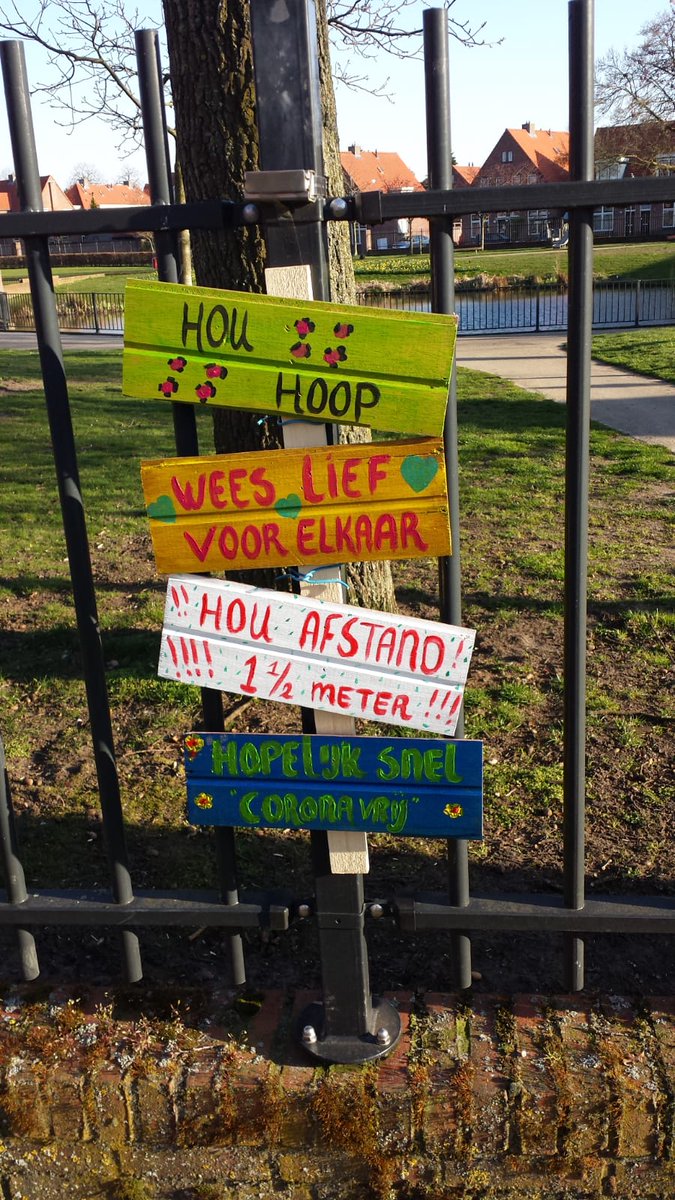 HOU
HOOP
WEES LIEF
VOOR ELKAAR
!! HOU AFSTAND!
!!!! 1 1/2 METER !!!
HOPELIJK SNEL
"CORONA VRIJ"